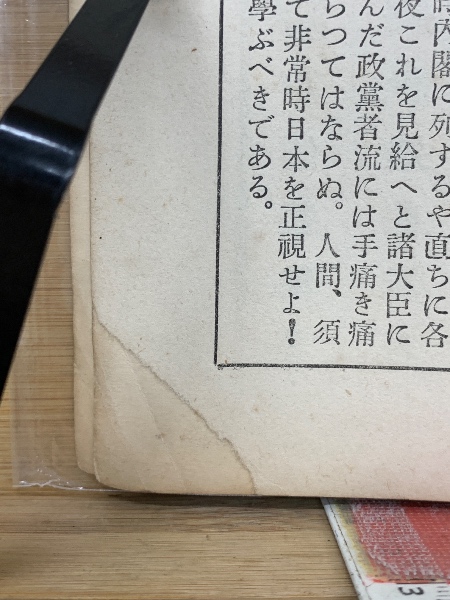 時内閣に列するや直ちに各
夜これを見給へと諸大臣に
んだ政黨者流には手痛き痛
らつてはならぬ。人間、須
て非常時日本を正視せよ！
學ぶべきである。
3